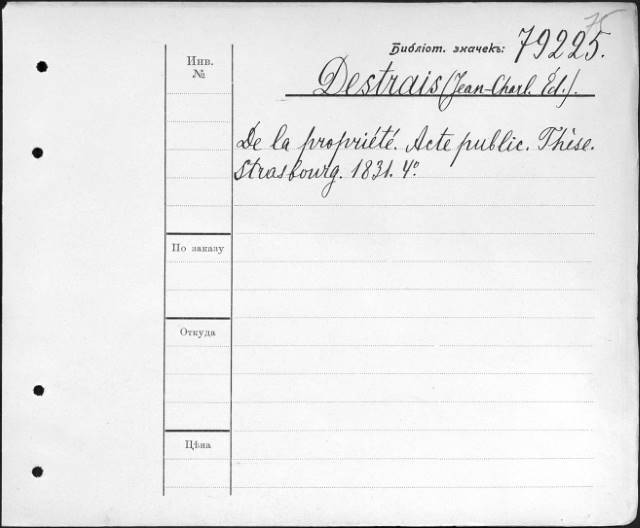 75
Библіот. значекъ: 79225.
Инв.
№
Destrais (Jean-Charl. Éd.).
De la propriété. Acte public. Thèse.
Strasbourg. 1831. 4º
По заказу
Откуда
Цѣна